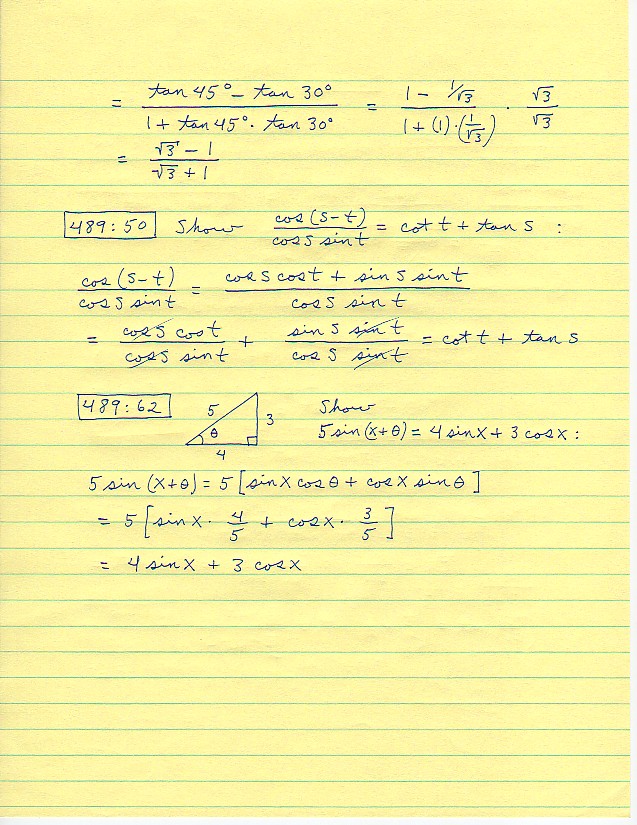 = (tan 45° − tan 30°)/(1 + tan 45° · tan 30°) = (1 − 1/√3)/(1 + (1)·(1/√3)) · √3/√3
= (√3 − 1)/(√3 + 1)
489:50 Show cos (s−t)/cos s sin t = cot t + tan s :
cos (s−t)/cos s sin t = (cos s cos t + sin s sin t)/(cos s sin t)
= cos s cos t/cos s sin t + sin s sin t/cos s sin t = cot t + tan s
489:62 5 3 θ 4 Show
5 sin (x+θ) = 4 sin x + 3 cos x :
5 sin (x+θ) = 5 [sin x cos θ + cos x sin θ]
= 5 [sin x · 4/5 + cos x · 3/5]
= 4 sin x + 3 cos x